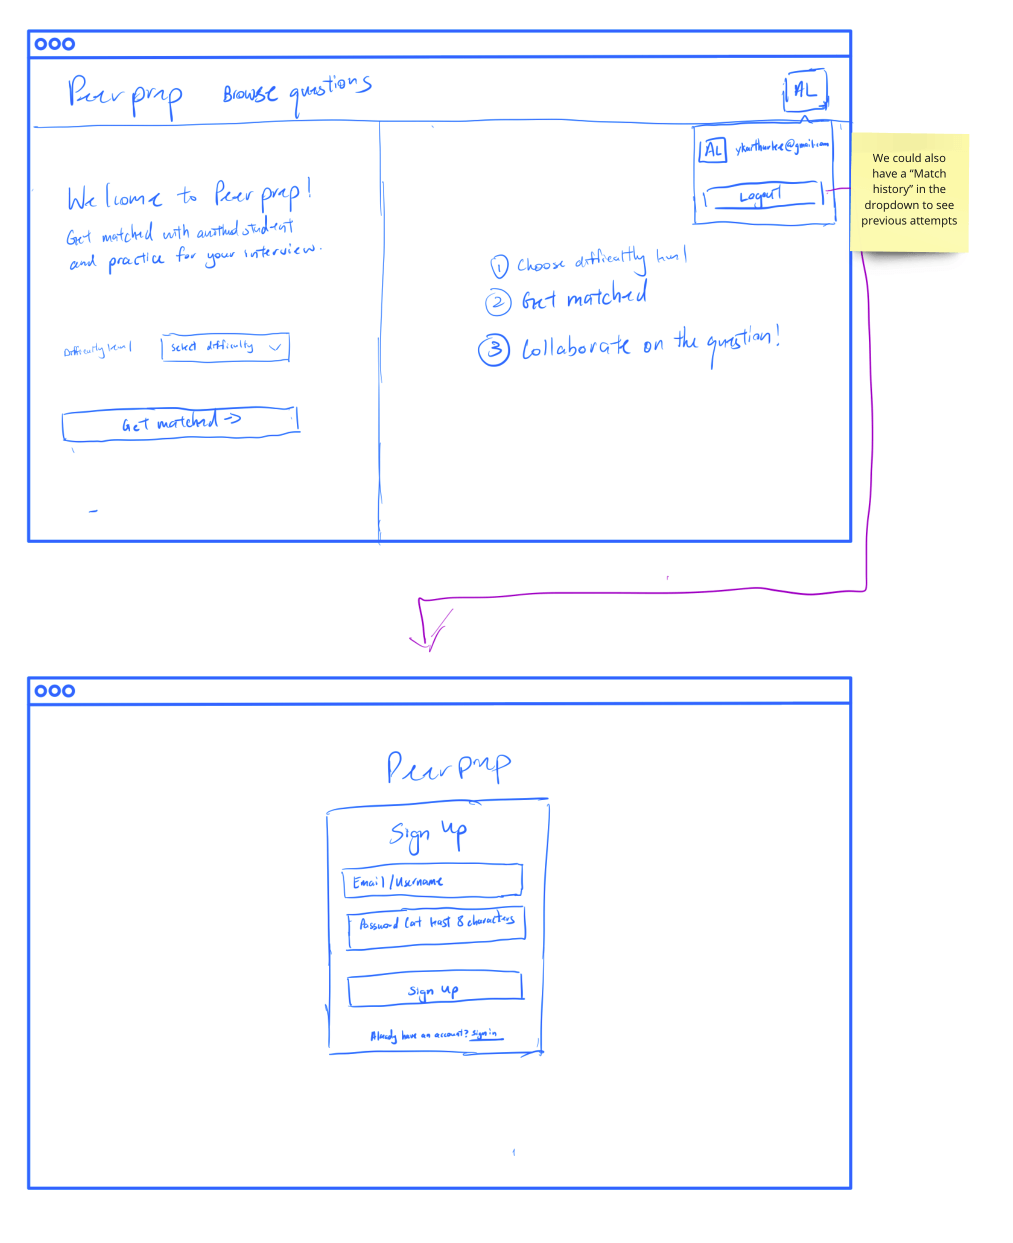 Peerprep
Browse questions
AL
AL ykarthurlee@gmail.com
Logout
We could also
have a “Match
history” in the
dropdown to see
previous attempts
Welcome to Peerprep!
Get matched with another student
and practice for your interview.
Difficulty level
Select difficulty
Get matched ->
1 Choose difficulty level
2 Get matched
3 Collaborate on the question!
Peerprep
Sign Up
Email/Username
Password (at least 8 characters
Sign Up
Already have an account? Sign in